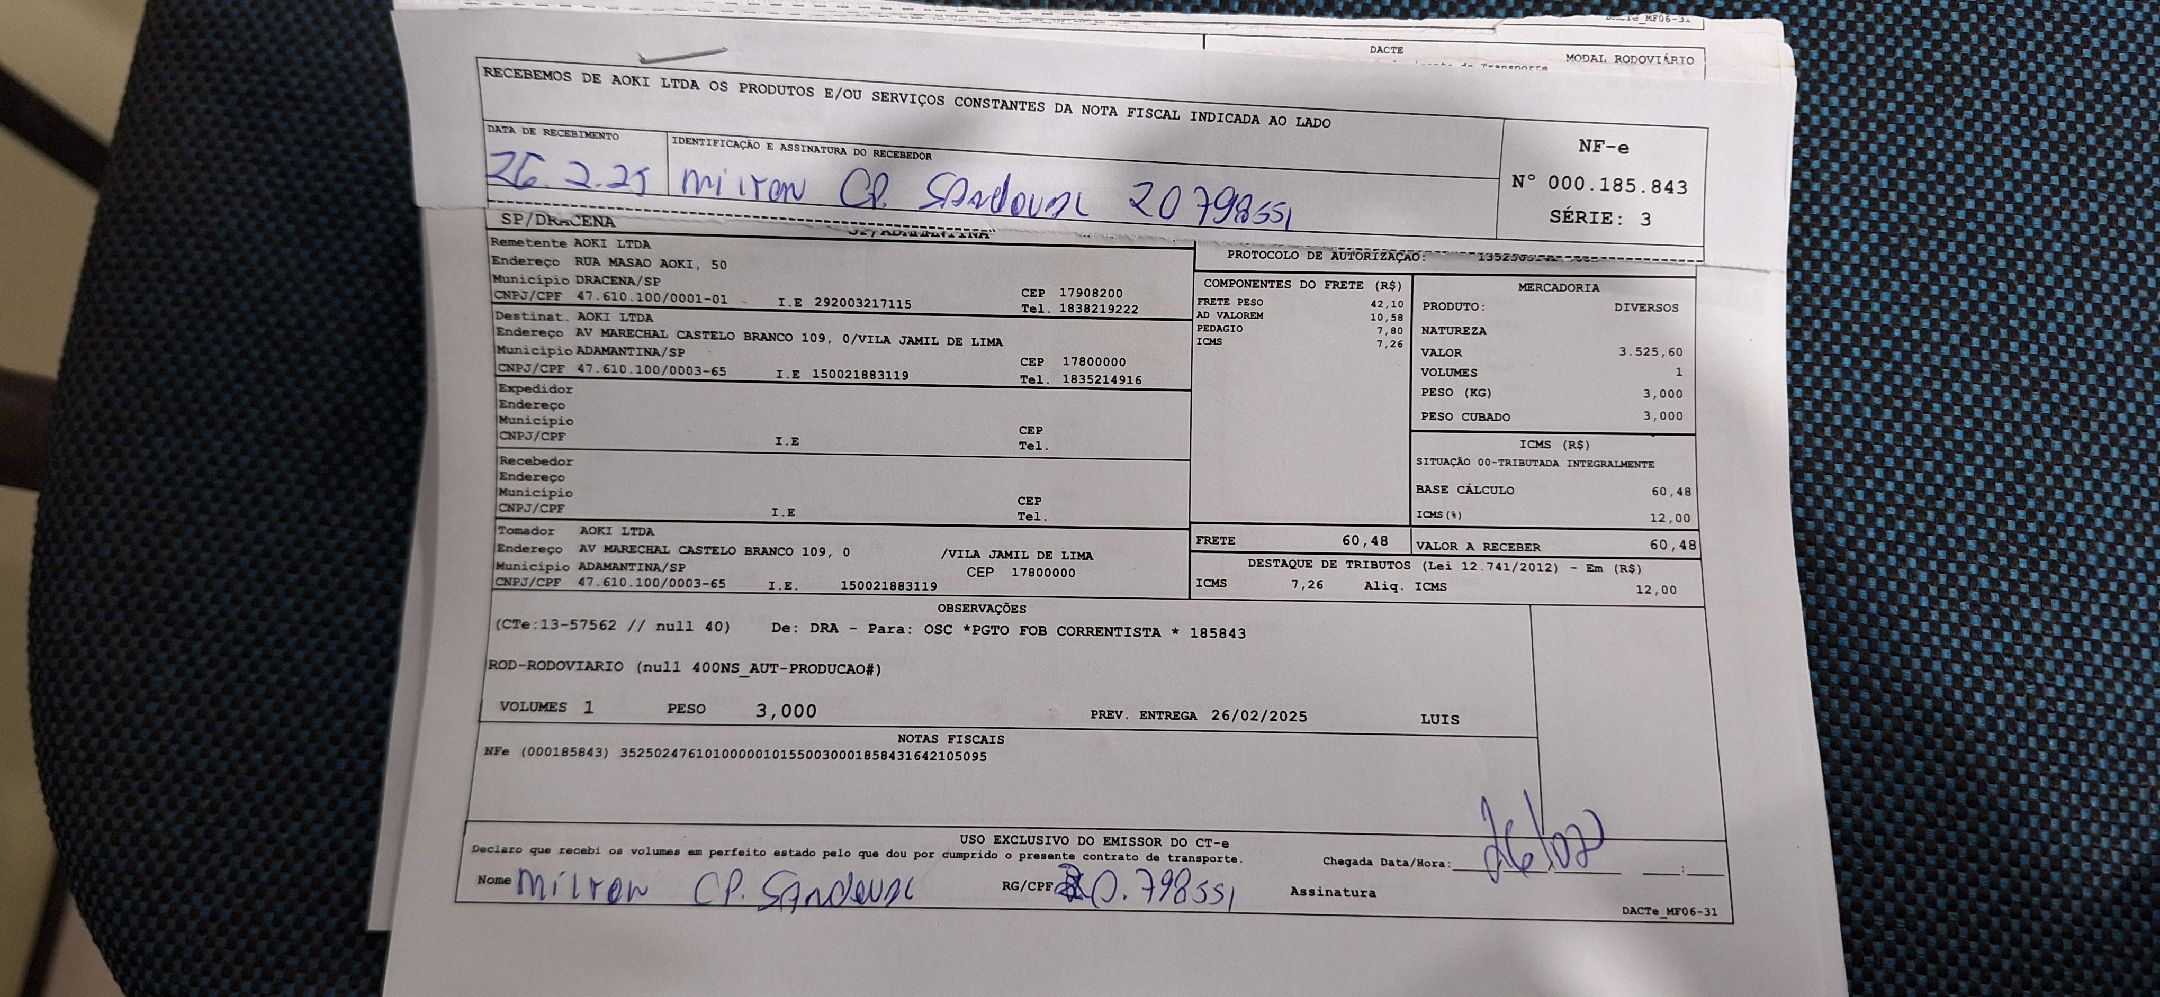 DACTe_MF06-31
DACTE
MODAL RODOVIÁRIO
RECEBEMOS DE AOKI LTDA OS PRODUTOS E/OU SERVIÇOS CONSTANTES DA NOTA FISCAL INDICADA AO LADO
DATA DE RECEBIMENTO
26.2.25
IDENTIFICAÇÃO E ASSINATURA DO RECEBEDOR
Milton CP. Sandoval 20798551
NF-e
N° 000.185.843
SÉRIE: 3
SP/DRACENA
SP/ADAMANTINA
Remetente AOKI LTDA
Endereço RUA MASAO AOKI, 50
Município DRACENA/SP
CEP 17908200
CNPJ/CPF 47.610.100/0001-01 I.E 292003217115 Tel. 1838219222
Destinat. AOKI LTDA
Endereço AV MARECHAL CASTELO BRANCO 109, 0/VILA JAMIL DE LIMA
Município ADAMANTINA/SP CEP 17800000
CNPJ/CPF 47.610.100/0003-65 I.E 150021883119 Tel. 1835214916
Expedidor
Endereço
Município CEP
CNPJ/CPF I.E Tel.
Recebedor
Endereço
Município CEP
CNPJ/CPF I.E Tel.
Tomador AOKI LTDA
Endereço AV MARECHAL CASTELO BRANCO 109, 0 /VILA JAMIL DE LIMA
Município ADAMANTINA/SP CEP 17800000
CNPJ/CPF 47.610.100/0003-65 I.E. 150021883119
PROTOCOLO DE AUTORIZAÇÃO:
COMPONENTES DO FRETE (R$)
FRETE PESO 42,10
AD VALOREM 10,58
PEDAGIO 7,80
ICMS 7,26
MERCADORIA
PRODUTO: DIVERSOS
NATUREZA
VALOR 3.525,60
VOLUMES 1
PESO (KG) 3,000
PESO CUBADO 3,000
ICMS (R$)
SITUAÇÃO 00-TRIBUTADA INTEGRALMENTE
BASE CÁLCULO 60,48
ICMS(%) 12,00
FRETE 60,48
VALOR A RECEBER 60,48
DESTAQUE DE TRIBUTOS (Lei 12.741/2012) - Em (R$)
ICMS 7,26 Aliq. ICMS 12,00
OBSERVAÇÕES
(CTe:13-57562 // null 40) De: DRA - Para: OSC *PGTO FOB CORRENTISTA * 185843
ROD-RODOVIARIO (null 400NS_AUT-PRODUCAO#)
VOLUMES 1 PESO 3,000 PREV. ENTREGA 26/02/2025 LUIS
NOTAS FISCAIS
NFe (000185843) 35250247610100000101550030001858431642105095
USO EXCLUSIVO DO EMISSOR DO CT-e
Declaro que recebi os volumes em perfeito estado pelo que dou por cumprido o presente contrato de transporte.
Chegada Data/Hora: 26/02 :
Nome Milton CP. Sandoval RG/CPF 20.798551 Assinatura
DACTe_MF06-31